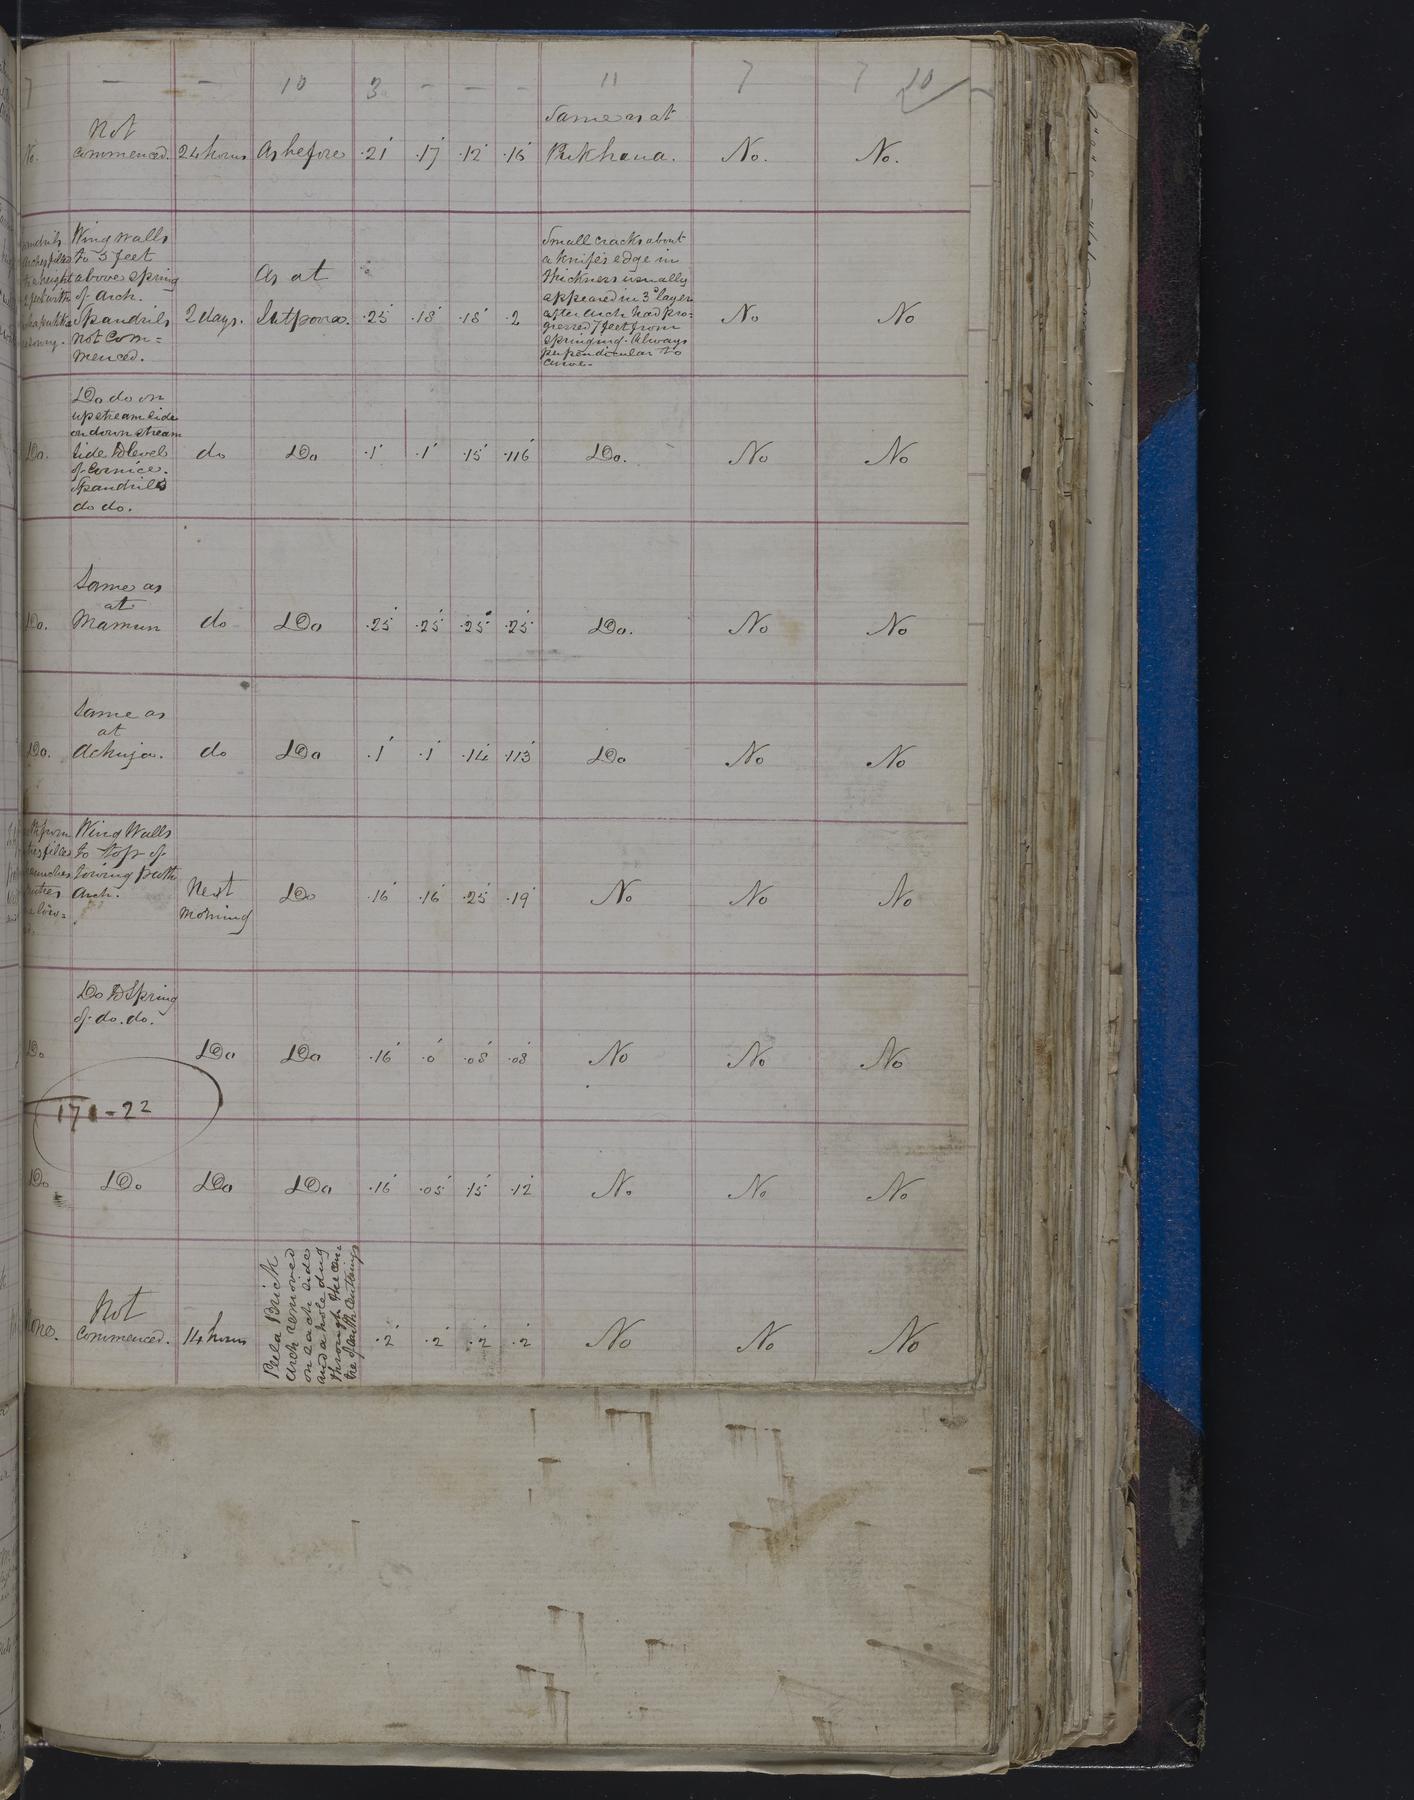 7 — — 10 3 — — — 11 7 7 10
Same as at
Not
No. commenced. 24 hours As before .21' .17' .12' .16' Rukhana. No. No.
Wing walls
to 3 feet
above spring
of Arch.
Spandrils
not Com=
menced.
2 days.
As at
Sutpora.
.25' .18' .18' .2'
Small cracks about
a knife's edge in
thickness usually
appeared in 3d layer
after Arch had pro-
gressed 7 feet from
springing. Always
perpendicular to
curve.
No No
Do.
Do do on
upstream side
on down stream
side to level
of Cornice.
Spandrils
do do.
do Do .1' .1' .15' .116' Do. No No
Same as
at
Do. Mamun do Do .25' .25' .25' .25' Do. No No
Same as
at
Do. Achuja. do Do .1' .1' .14' .113' Do No No
Wing Walls
to top of
towing path
Arch.
Next
Morning
Do .16' .16' .25' .19' No No No
Do to Spring
of do. do.
Do Do Do .16' .0' .08' .08' No No No
171-22
Do. Do Do Do .16' .05' .15' .12' No No No
Not
None. Commenced. 14 hours
Peela Brick
arch removed
on each side
and a hole dug
through the cen-
tre of earth Centerings
.2' .2' .2' .2' No No No